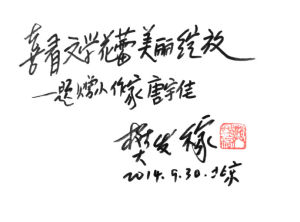 喜看文学花蕾美丽绽放
—题赠小作家唐宇佳
樊发稼
2014.9.30.北京